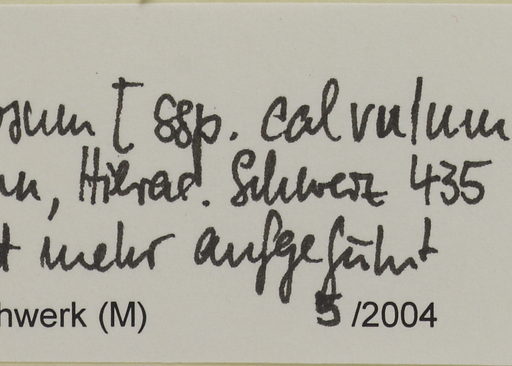 osum [ ssp. calvulum
nn, Hierac. Schweiz 435
t mehr aufgeführt
hwerk (M) 5/2004